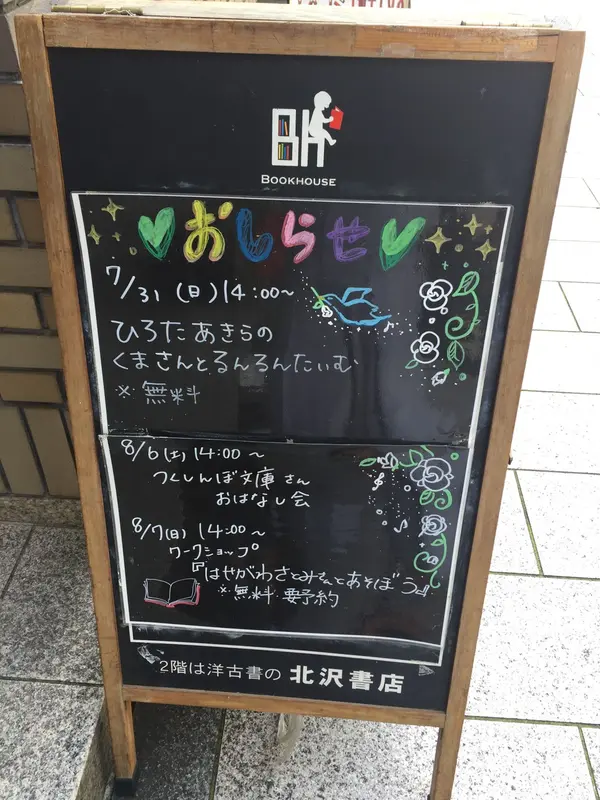 Bh
BOOKHOUSE
おしらせ
7/31 (日) 14:00~
ひろたあきらの
くまさんとるんるんたいむ
※ 無料
8/6 (土) 14:00~
つくしんぼ文庫さん
おはなし会
8/7(日) 14:00~
ワークショップ
『はせがわさとみさんとあそぼう』
※無料 要予約
2階は洋古書の 北沢書店